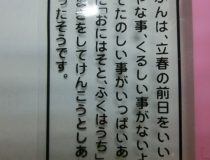 ぶんは、立春の前日をいい
やな事、くるしい事がないよ
てたのしい事がいっぱいあ
に「おにはそと、ふくはうち」
をきをしてけんこうとしあ
ったそうです。